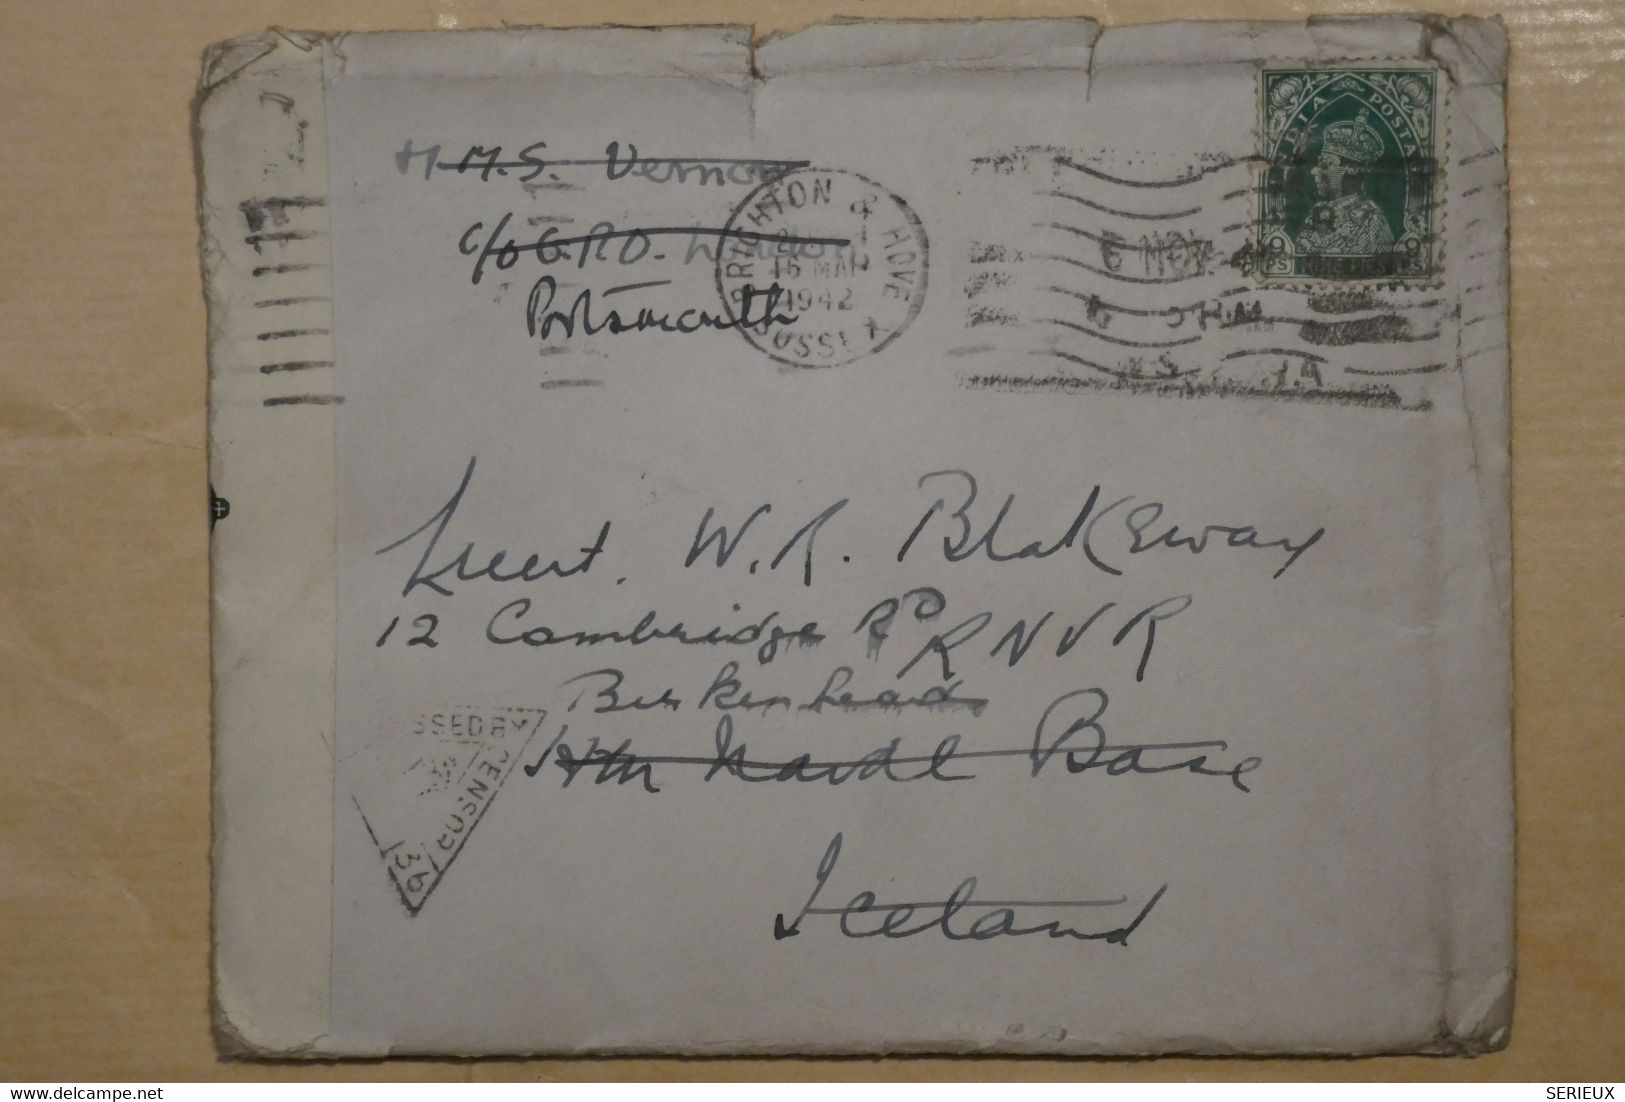 INDIA POSTAGE
9 PS 9 PS
H.M.S. Vernon
c/o G.P.O. London
Portsmouth
BRIGHTON & HOVE SUSSEX
15 MAR
1942
6 NOV
Lieut. W. R. Blakeway
12 Cambridge Rd RNVR
Birkenhead
Naval Base
Iceland
PASSED BY
CENSOR
36
SERIEUX